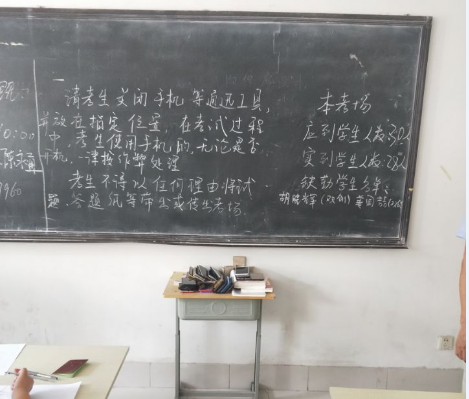 一
请考生关闭手机等通迅工具,
并放在指定位置,在考试过程
中考生使用手机的,无论是否
开机,一律按作弊处理
考生不得以任何理由将试
题、答题纸等带出或传出考场.
本考场
应到学生人数:30人
实到学生人数:28人
缺勤学生名单: